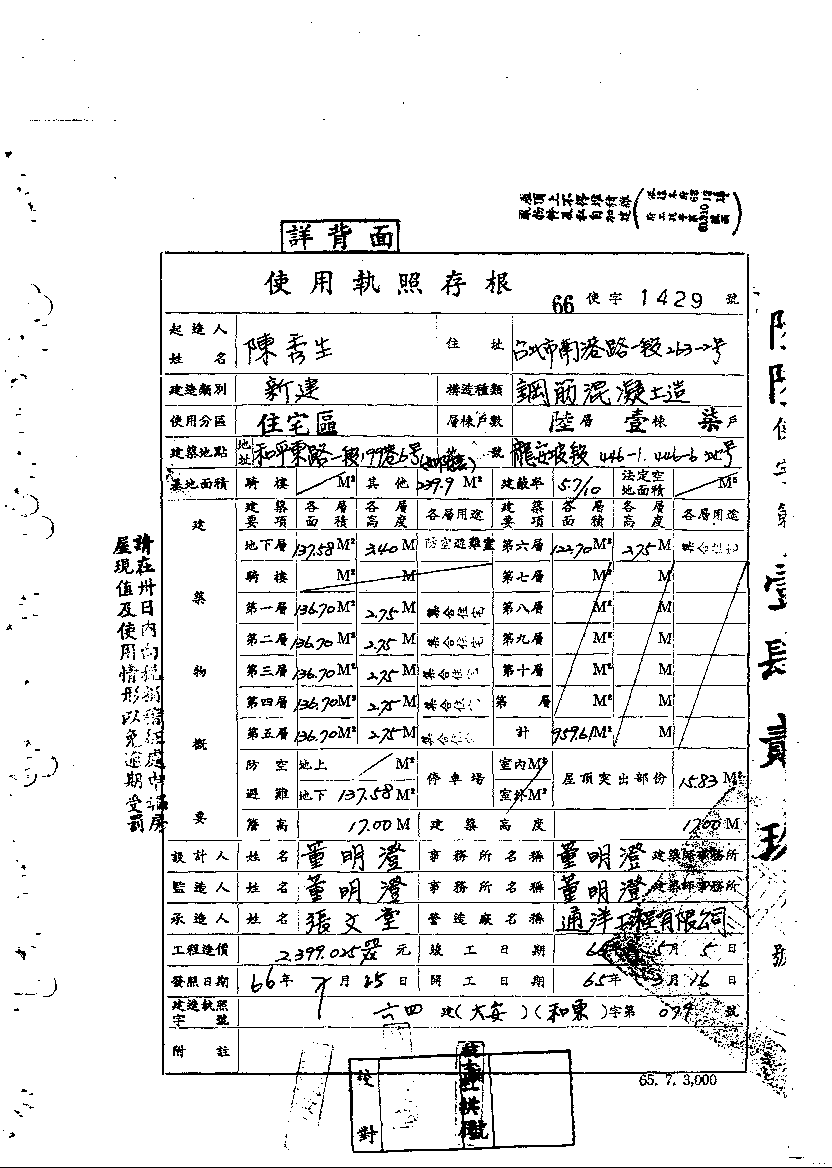 屋頂上不得堆積雜
詳背面
使用執照存根
66 使字 1429 號
起造人姓名 陳秀生 住址 台北市南港路一段263-2號
建造類別 新建 構造種類 鋼筋混凝土造
使用分區 住宅區 層棟戶數 陸層 壹棟 柒戶
建築地點 地址 和平東路一段199巷6號 號 龍安坡段 446-1. 446-6
基地面積 騎樓 M² 其他 239.9 M² 建蔽率 5.7/10 法定空地面積 M²
建築要項 各層面積 各層高度 各層用途 建築要項 各層面積 各層高度 各層用途
建築物概要
地下層 137.58 M² 3.40 M 防空避難室 第六層 122.70 M² 2.75 M 集合住宅
騎樓 M² M 第七層 M² M
第一層 136.70 M² 2.75 M 集合住宅 第八層 M² M
第二層 136.70 M² 2.75 M 集合住宅 第九層 M² M
第三層 136.70 M² 2.75 M 集合住宅 第十層 M² M
第四層 136.70 M² 2.75 M 集合住宅 第 層 M² M
第五層 136.70 M² 2.75 M 集合住宅 計 959.61 M² M
防空避難 地上 M² 停車場 室內 M² 屋頂突出部份 15.83 M²
地下 137.58 M² 室外 M²
簷高 17.00 M 建築高度 17.00 M
設計人 姓名 董明澄 事務所名稱 董明澄建築師事務所
監造人 姓名 董明澄 事務所名稱 董明澄建築師事務所
承造人 姓名 張文 營造廠名稱 通洋工程有限公司
工程造價 2,399.025 元 竣工日期 66年 5月 5日
發照日期 66年 7月 25日 開工日期 65年 3月 16日
建造執照字號 六四 建(大安)(和東)字第 號
附註
校對
65. 7. 3,000
請在卅日內向稅捐稽征處申報房
屋現值及使用情形以免逾期受罰
號